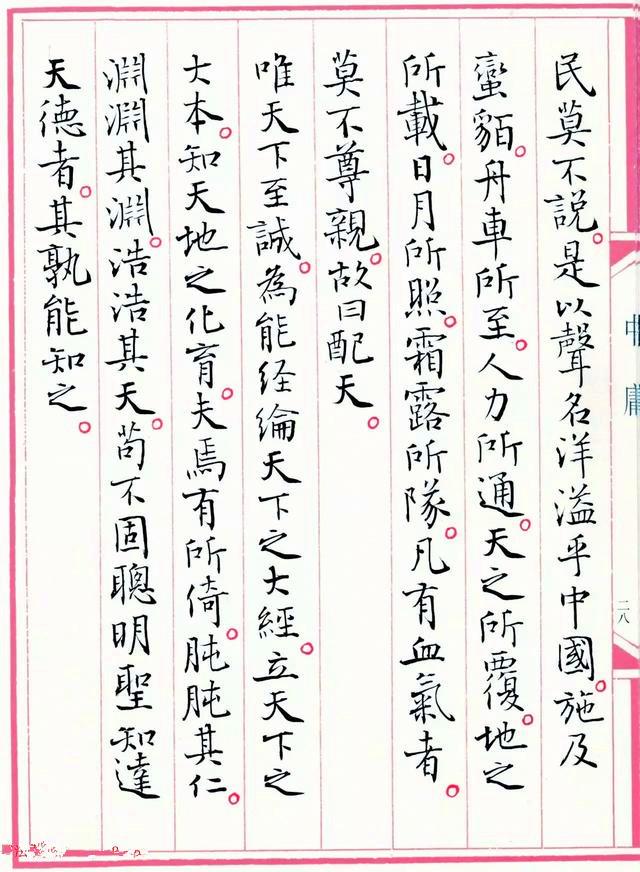 民莫不説。是以聲名洋溢乎中國。施及
蠻貊。舟車所至。人力所通。天之所覆。地之
所載。日月所照。霜露所隊。凡有血氣者。
莫不尊親。故曰配天。
唯天下至誠。為能経綸天下之大經。立天下之
大本。知天地之化育。夫焉有所倚。肫肫其仁。
淵淵其淵。浩浩其天。苟不固聰明聖知達
天德者。其孰能知之。
中庸
二八